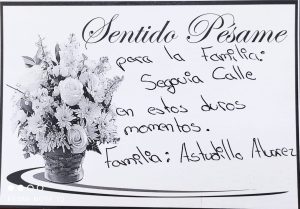 Sentido Pésame
para la Familia:
Segovia Calle
en estos duros
momentos.
Familia: Astudillo Alvarez